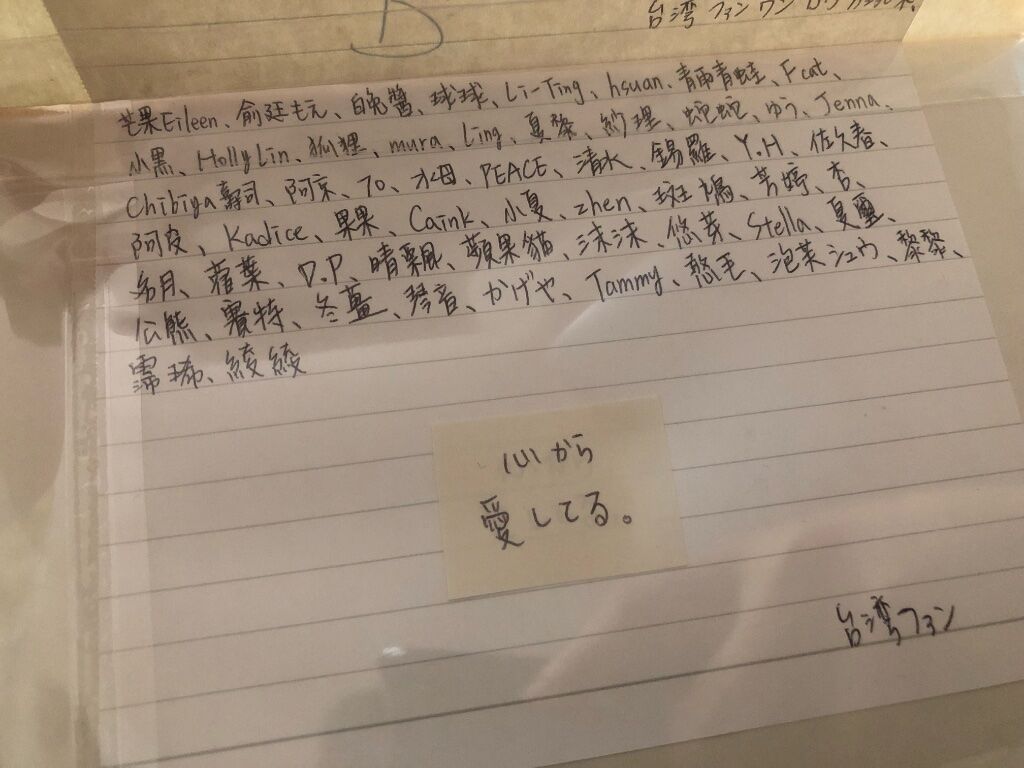 芒果Eileen、俞廷、白兔醬、球球、Li-Ting、hsuan、青雨青蛙、Feat、
小黑、Holly Lin、狐狸、mura、Ling、夏黎、紗理、蛇蛇、ゆう、Jenna、
Chibiya壽司、阿京、70、水母、PEACE、清水、錫羅、Y.H、佐久春、
阿皮、Kadice、果果、Caink、小夏、zhen、斑鳩、芳婷、杏、
希月、蘿葉、D.P、晴颯、蘋果貓、沫沫、悠芽、Stella、夏璽、
公熊、賽特、冬薑、琴音、かげや、Tammy、憨毛、泡芙シュウ、黎黎、
霈琋、綾綾
心から
愛してる。
台湾ファン